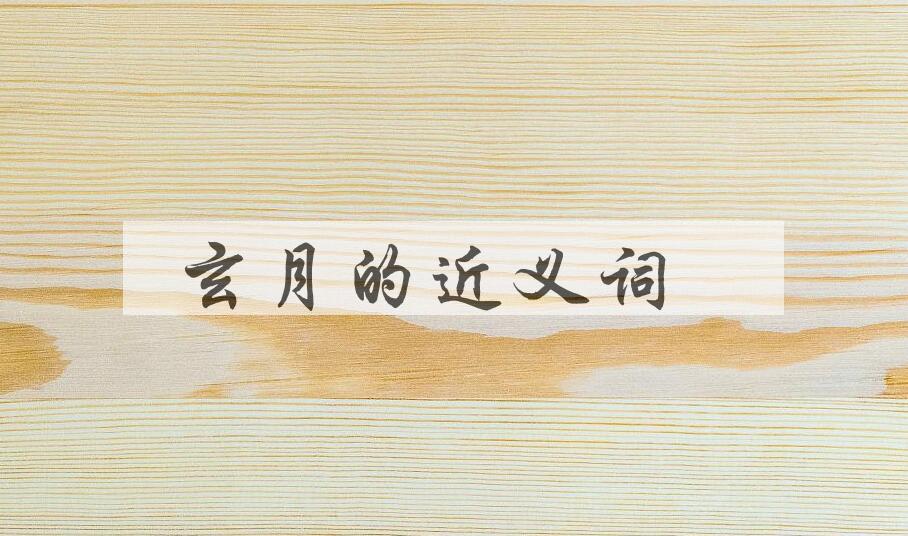 玄月的近义词